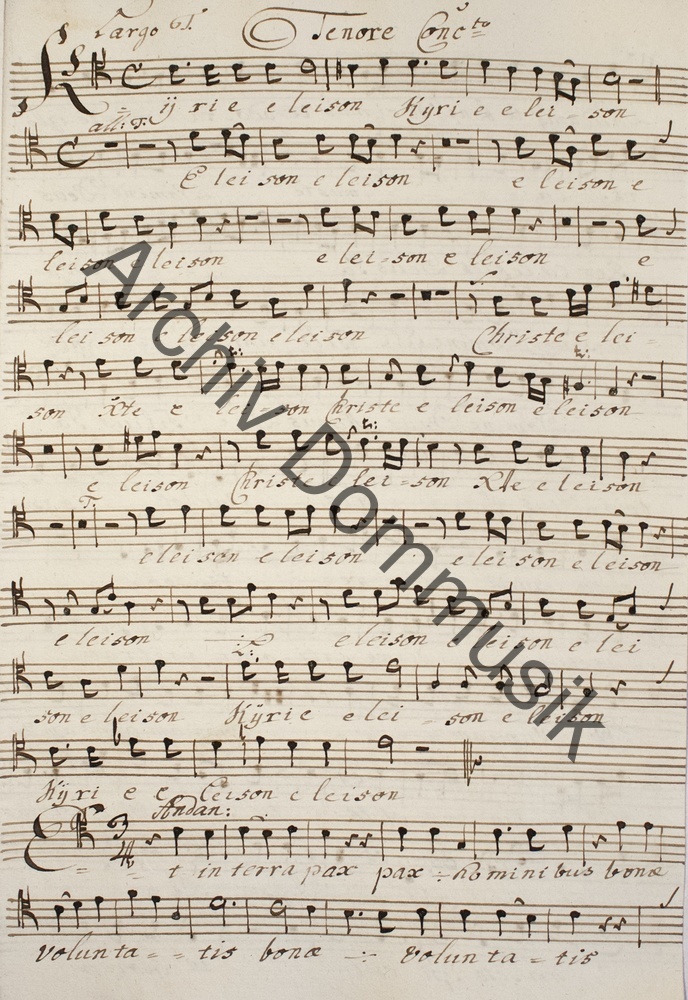 Largo 6T. Tenore Conc:to
Kyrie eleison Kyrie elei - son
all: T.
E leison eleison eleison e
leison eleison elei - son eleison e
leison eleison eleison Christe elei -
son Xte elei - son Christe eleison eleison
tr:
eleison Christe elei - son Xte eleison
T.
eleison eleison eleison eleison
eleison eleison eleison elei
son eleison Kÿrie elei - son eleison
Kÿrie eleison eleison
Andan:
Et in terra pax pax hominibus bonæ
volunta - - tis bonæ volunta - tis
Archiv Dommusik